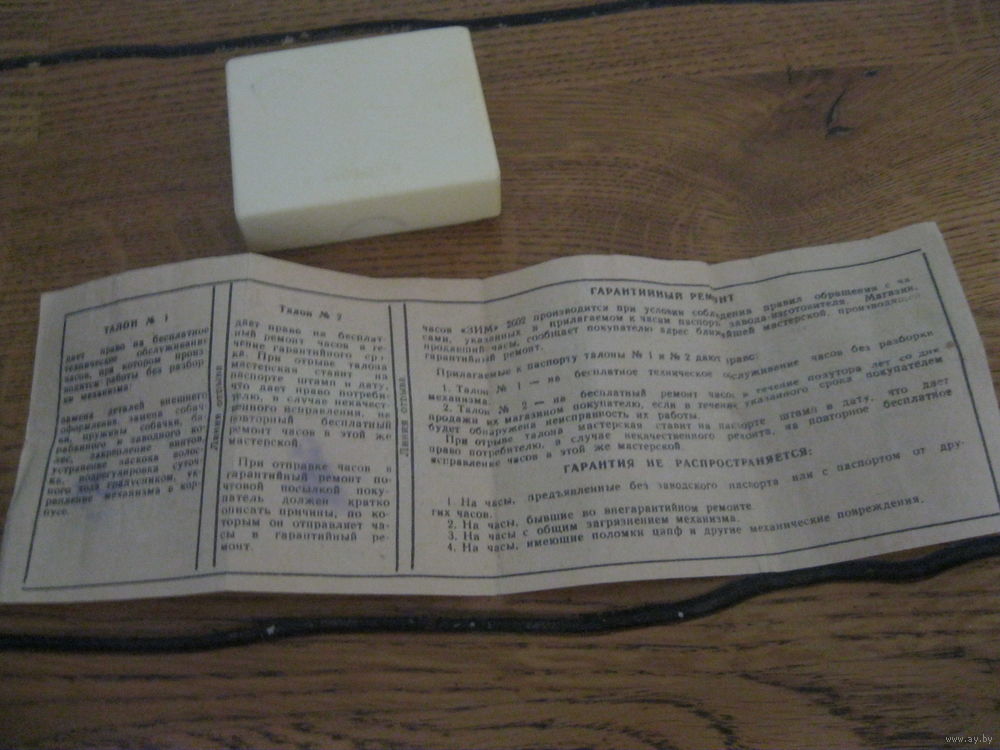 ТАЛОН № 1
дает право на бесплатное
техническое обслуживание
часов, при котором произ
водятся работы без разбор
ки механизма.
замена деталей внешнего
оформления, замена собач
ки, пружины собачки,
барабанного и заводного ко
лес, закрепление винтов,
устранение
ка, подрегулировка суточ
ного хода градусником,
механизма в кор
бусе.
Линия отрыва
Талон № 2
дает право на бесплат
ный ремонт часов в те
чение гарантийного сро
ка. При отрыве талона
мастерская ставит на
паспорте штамп и дату,
что дает право потреби
телю, в случае некачест
венного исправления, на
повторный бесплатный
ремонт часов в этой же
мастерской.
При отправке часов в
гарантийный ремонт по
чтовой посылкой поку
патель должен кратко
описать причины, по ко
торым он отправляет ча
сы в гарантийный ре
монт.
Линия отрыва
ГАРАНТИЙНЫЙ РЕМОНТ
часов «ЗИМ» 2602 производится при условии соблюдения правил обращения с ча
сами, указанных в прилагаемом к часам паспорте завода-изготовителя. Магазин,
продавший часы, сообщает покупателю адрес ближайшей мастерской, производящей
гарантийный ремонт.
Прилагаемые к паспорту талоны № 1 и № 2 дают право:
1. Талон № 1 — на бесплатное техническое обслуживание часов без разборки
механизма.
2. Талон № 2 — на бесплатный ремонт часов в течение полутора лет со дня
продажи их магазином покупателю, если в течение указанного срока покупателем
будет обнаружена неисправность их работы.
При отрыве талона мастерская ставит на паспорте штамп и дату, что дает
право потребителю, в случае некачественного ремонта, на повторное бесплатное
исправление часов в этой же мастерской.
ГАРАНТИЯ НЕ РАСПРОСТРАНЯЕТСЯ:
1. На часы, предъявленные без заводского паспорта или с паспортом от дру
гих часов.
2. На часы, бывшие во внегарантийном ремонте.
3. На часы с общим загрязнением механизма.
4. На часы, имеющие поломки цапф и другие механические повреждения.
www.ay.by